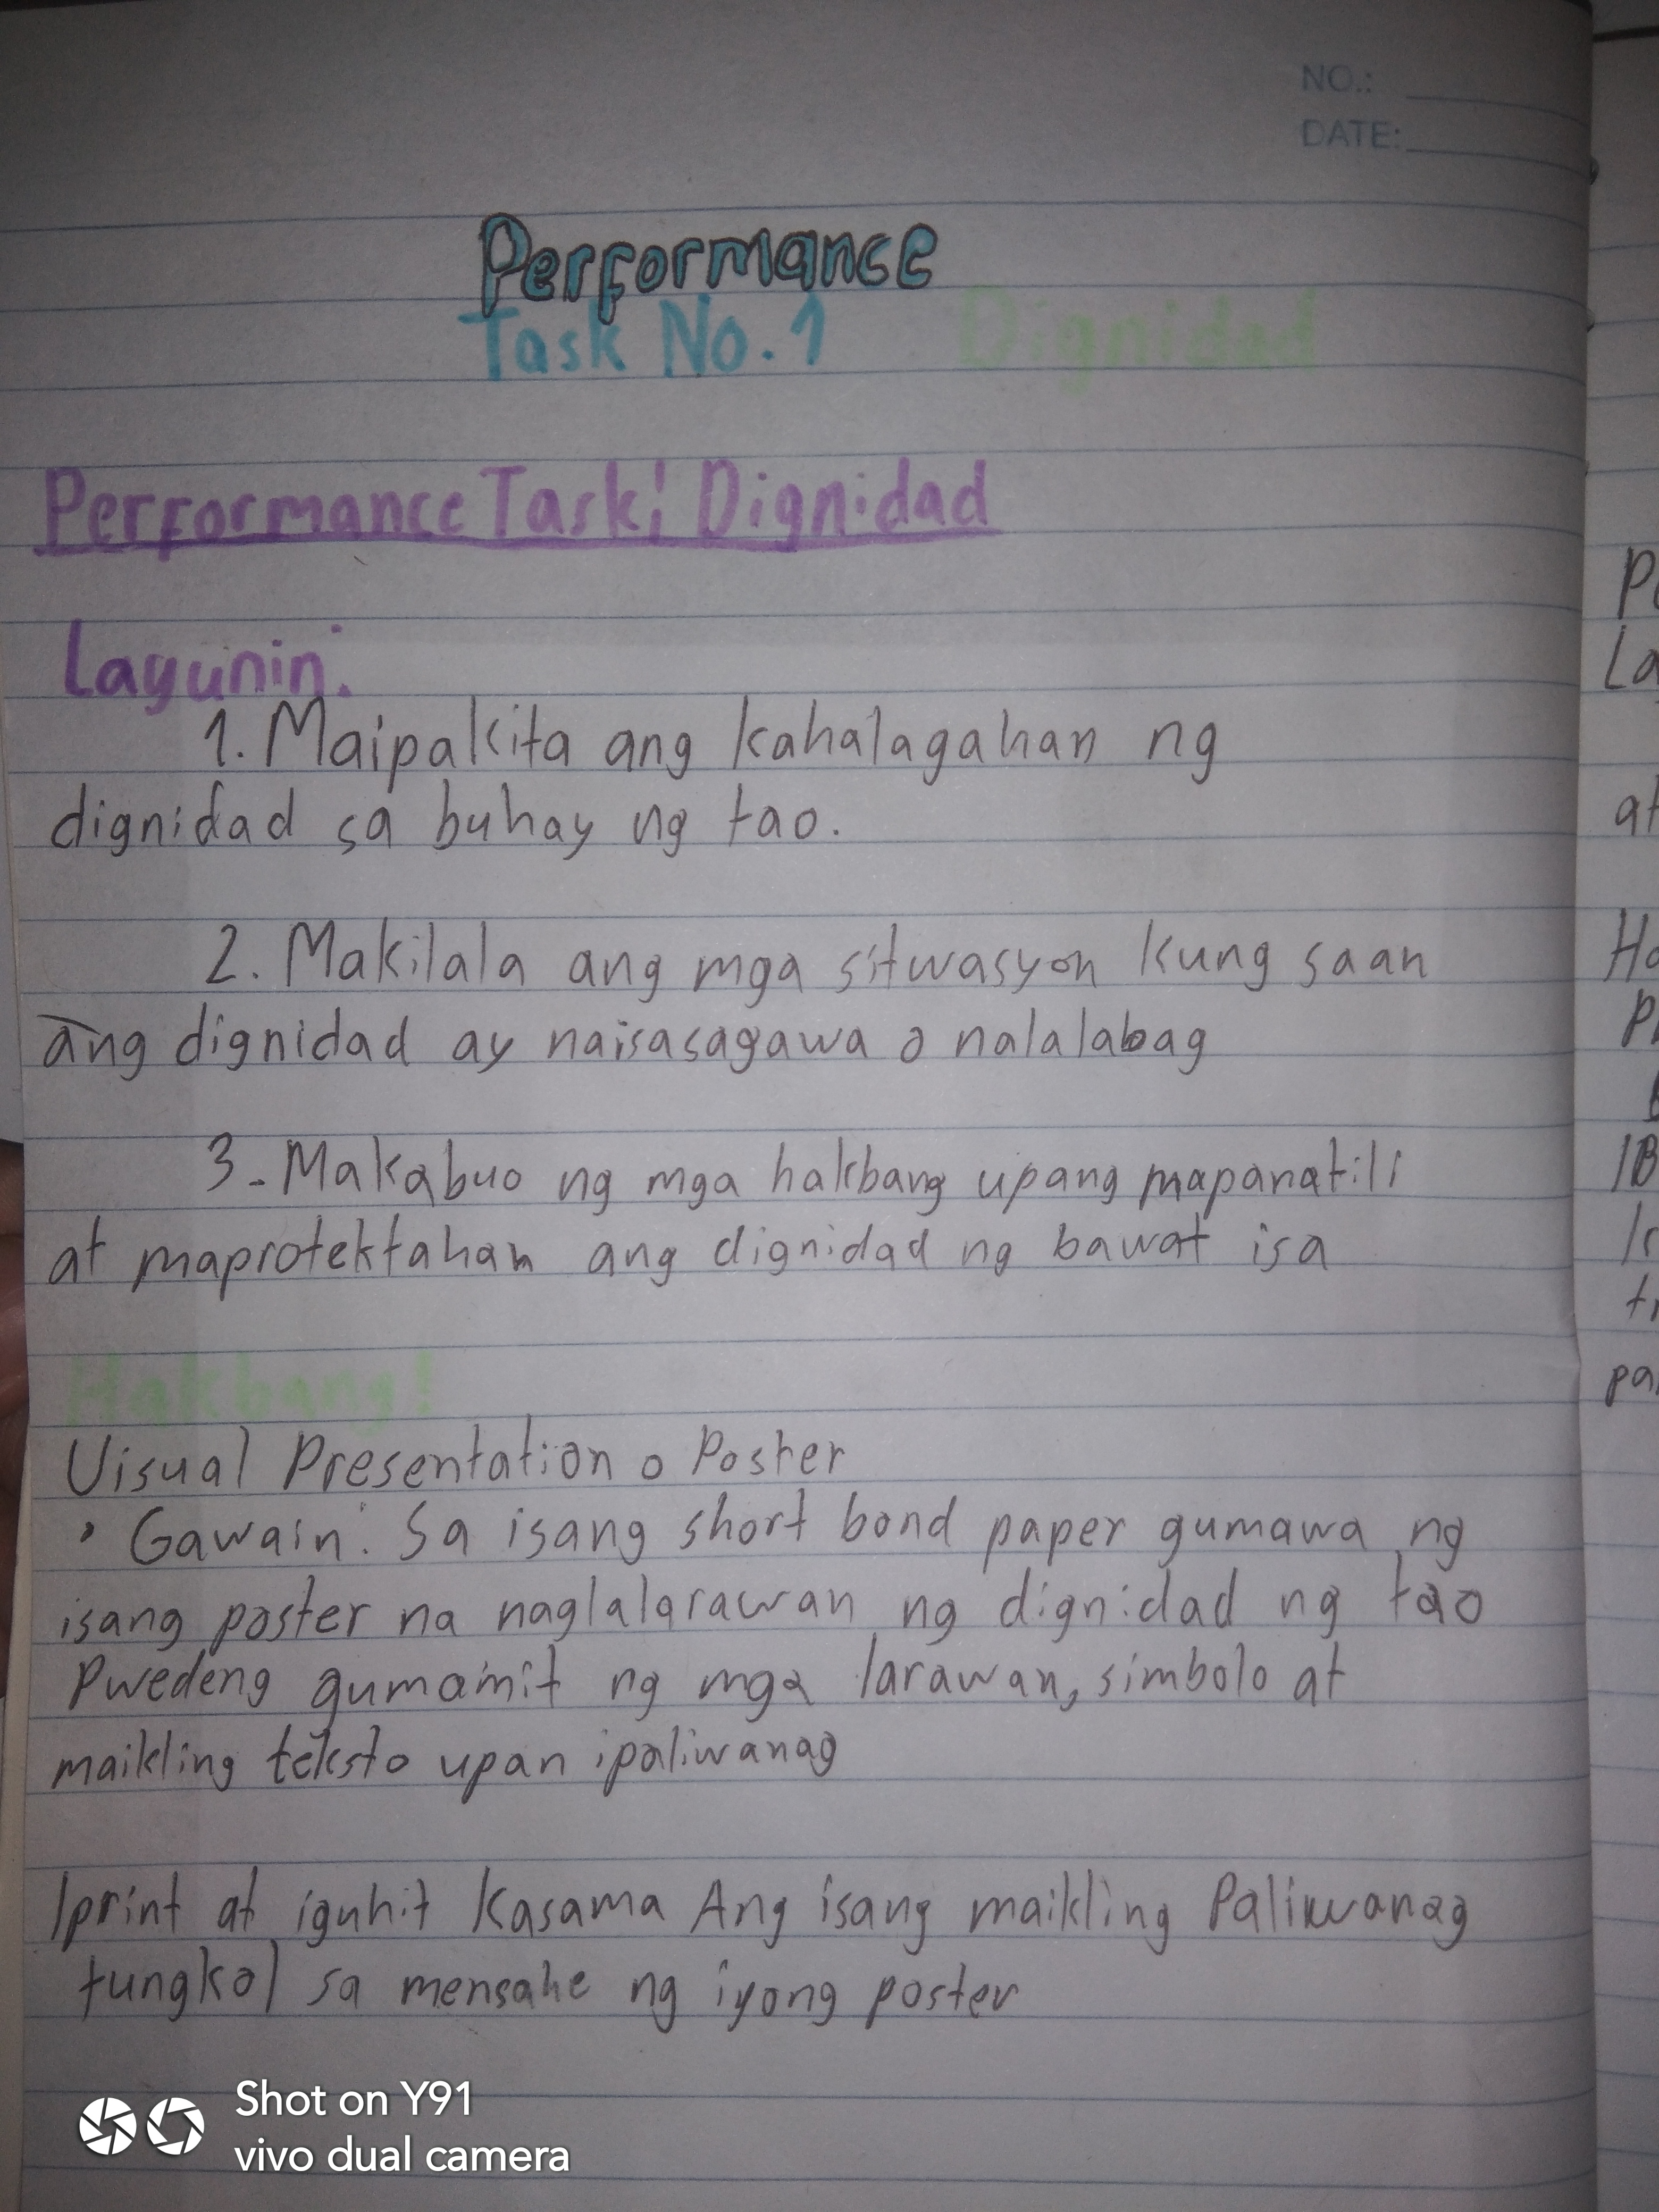 NO.:
DATE:
Performance
Task No. 1 Dignidad
Performance Task: Dignidad
Layunin:
1. Maipakita ang kahalagahan ng
dignidad sa buhay ng tao.
2. Makilala ang mga sitwasyon kung saan
ang dignidad ay naisasagawa o nalalabag
3. Makabuo ng mga hakbang upang mapanatili
at maprotektahan ang dignidad ng bawat isa
Hakbang!
Visual Presentation o Poster
• Gawain: Sa isang short bond paper gumawa ng
isang poster na naglalarawan ng dignidad ng tao
Pwedeng gumamit ng mga larawan, simbolo at
maikling teksto upan ipaliwanag
Iprint at iguhit Kasama Ang isang maikling Paliwanag
tungkol sa mensahe ng iyong poster
Shot on Y91
vivo dual camera